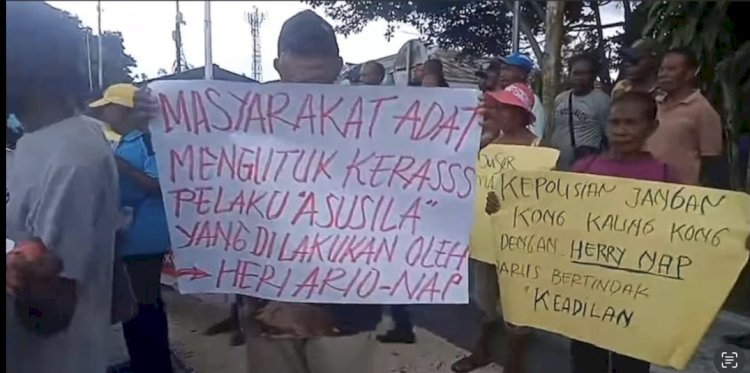 MASYARAKAT ADAT
MENGUTUK KERASSS
PELAKU "ASUSILA"
YANG DI LAKUKAN OLEH
→ HERI ARIO-NAP
KEPOLISIAN JANGAN
KONG KALING KONG
DENGAN HERRY NAP
BERTINDAK
"KEADILAN